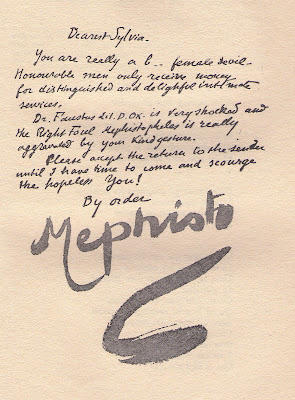 Dearest Sylvia.
You are really a b... female devil.
Honourable men only receive money
for distinguished and delightful intimate
services.
Dr. Faustus Lit. D. Ox. is very shocked and
the Right Foul Mephistopheles is really
aggravated by your kind gesture.
Please accept the return to the sender
until I have time to come and scourge
the hopeless You!
By order
Mephisto